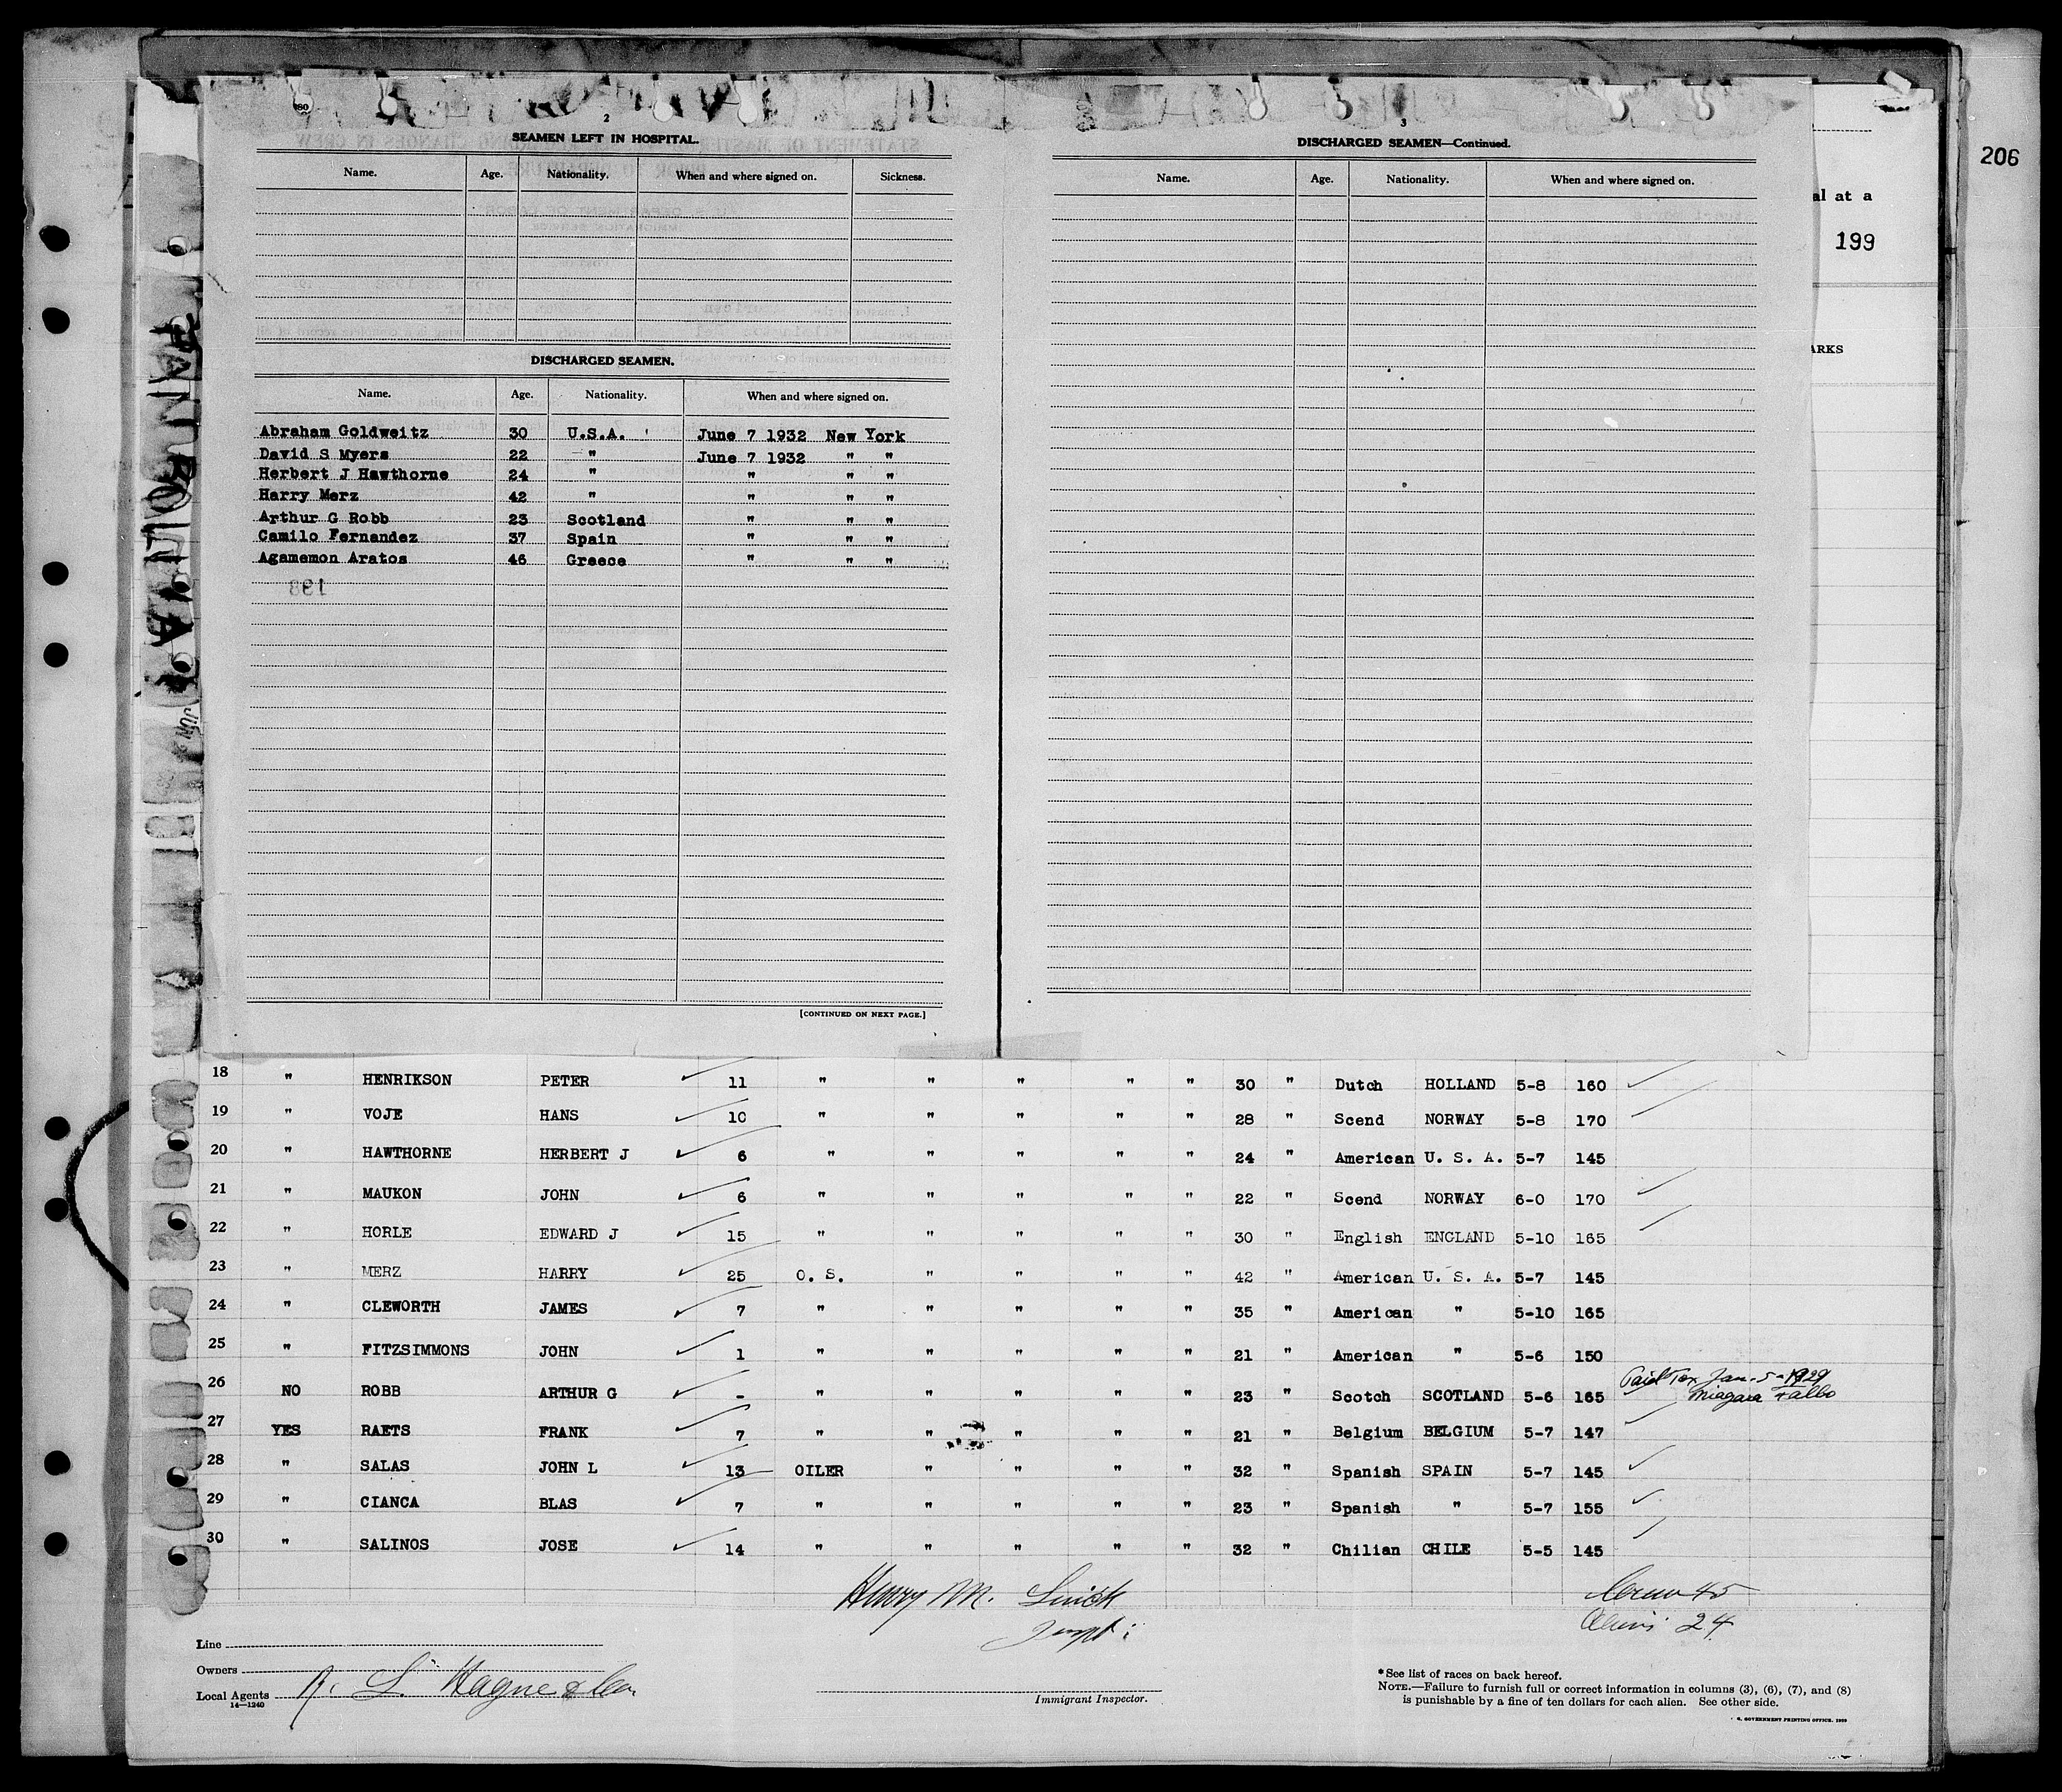 206
al at a
199
ARKS
380
2
SEAMEN LEFT IN HOSPITAL.
Name. Age. Nationality. When and where signed on. Sickness.
DISCHARGED SEAMEN.
Name. Age. Nationality. When and where signed on.
Abraham Goldweitz 30 U.S.A. June 7 1932 New York
David S Myers 22 " June 7 1932 " "
Herbert J Hawthorne 24 " " " "
Harry Merz 42 " " " "
Arthur G Robb 23 Scotland " " "
Camilo Fernandez 37 Spain " " "
Agamemon Aratos 46 Greece " " "
198
[CONTINUED ON NEXT PAGE.]
3
DISCHARGED SEAMEN—Continued.
Name. Age. Nationality. When and where signed on.
18 " HENRIKSON PETER 11 " " " " " 30 " Dutch HOLLAND 5-8 160
19 " VOJE HANS 10 " " " " " 28 " Scend NORWAY 5-8 170
20 " HAWTHORNE HERBERT J 6 " " " " " 24 " American U. S. A. 5-7 145
21 " MAUKON JOHN 6 " " " " " 22 " Scend NORWAY 6-0 170
22 " HORLE EDWARD J 15 " " " " " 30 " English ENGLAND 5-10 165
23 " MERZ HARRY 25 O. S. " " " " 42 " American U. S. A. 5-7 145
24 " CLEWORTH JAMES 7 " " " " " 35 " American " 5-10 165
25 " FITZSIMMONS JOHN 1 " " " " " 21 " American " 5-6 150
26 NO ROBB ARTHUR G - " " " " " 23 " Scotch SCOTLAND 5-6 165 Paid Tax Jan. 5-1929
Niagara Falls
27 YES RAETS FRANK 7 " " " " " 21 " Belgium BELGIUM 5-7 147
28 " SALAS JOHN L 13 OILER " " " " 32 " Spanish SPAIN 5-7 145
29 " CIANCA BLAS 7 " " " " " 23 " Spanish " 5-7 155
30 " SALINOS JOSE 14 " " " " " 32 " Chilian CHILE 5-5 145
Henry M.
Inspt.
45
24
Line
Owners
Local Agents R. L. Hague
14—1240
Immigrant Inspector.
* See list of races on back hereof.
NOTE.—Failure to furnish full or correct information in columns (3), (6), (7), and (8)
is punishable by a fine of ten dollars for each alien. See other side.
GOVERNMENT PRINTING OFFICE.